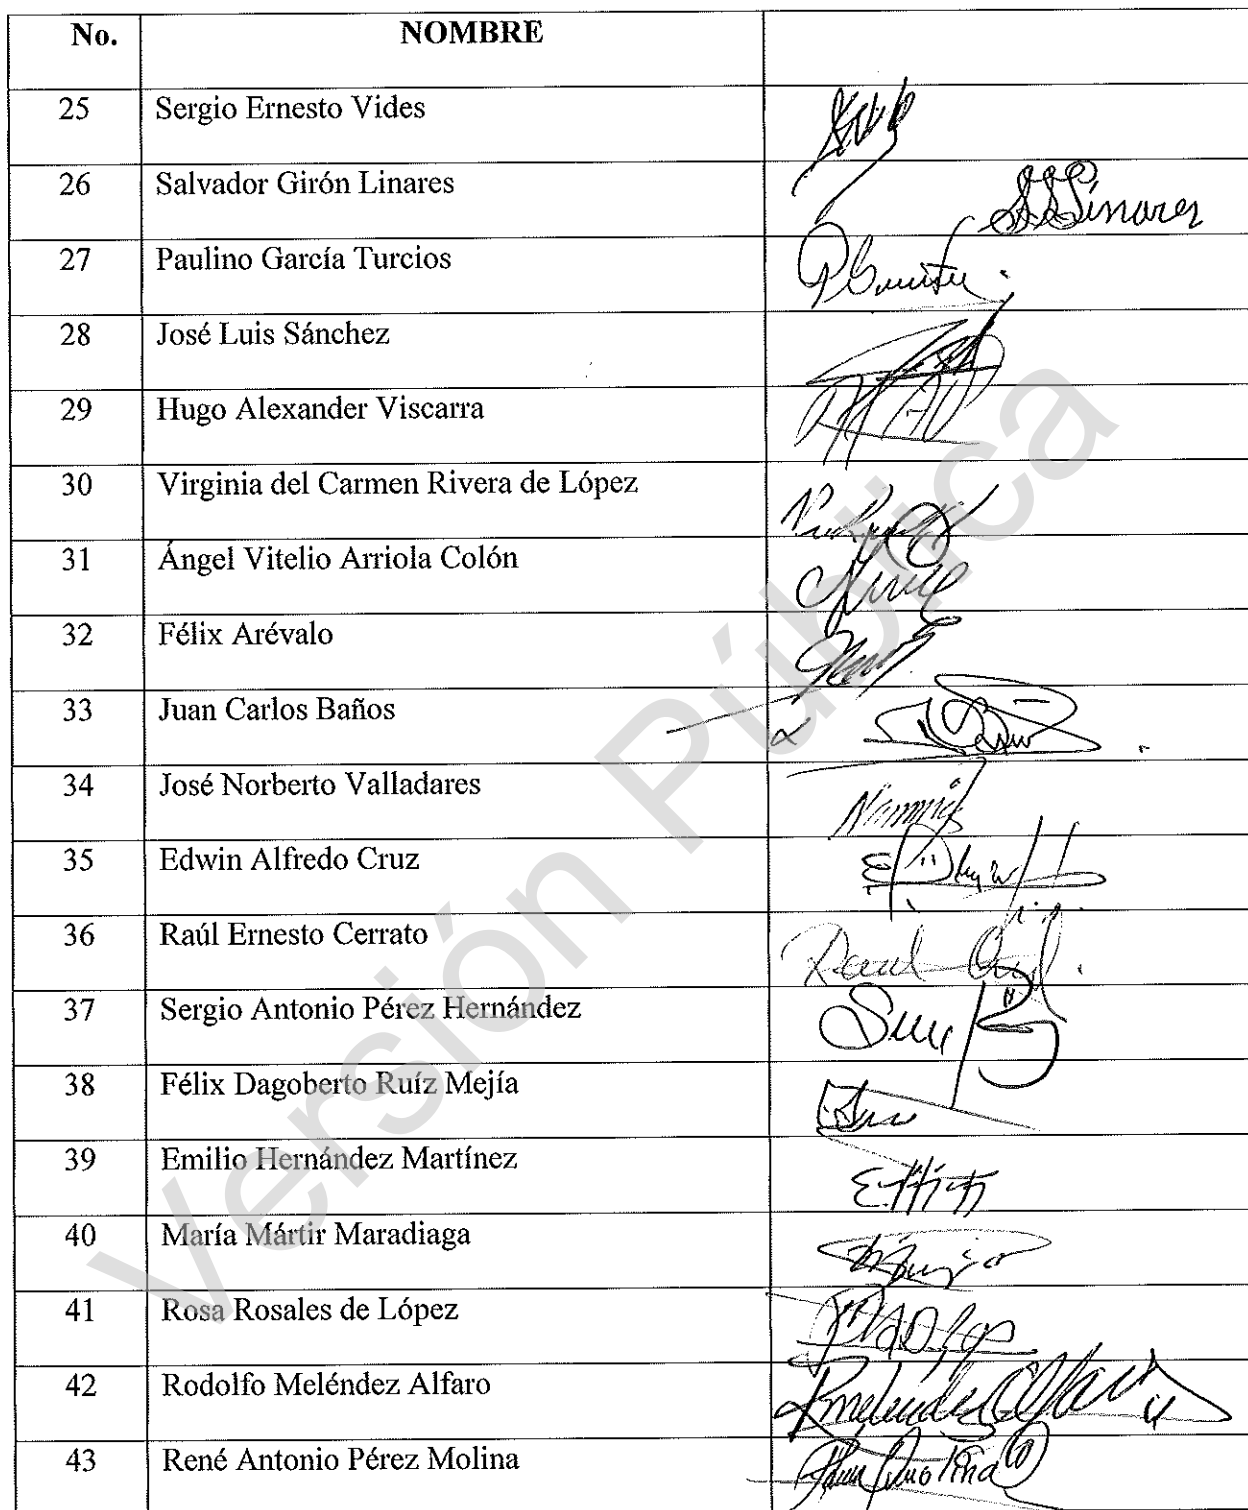 No. NOMBRE
25 Sergio Ernesto Vides
26 Salvador Girón Linares
27 Paulino García Turcios
28 José Luis Sánchez
29 Hugo Alexander Viscarra
30 Virginia del Carmen Rivera de López
31 Ángel Vitelio Arriola Colón
32 Félix Arévalo
33 Juan Carlos Baños
34 José Norberto Valladares
35 Edwin Alfredo Cruz
36 Raúl Ernesto Cerrato
37 Sergio Antonio Pérez Hernández
38 Félix Dagoberto Ruíz Mejía
39 Emilio Hernández Martínez
40 María Mártir Maradiaga
41 Rosa Rosales de López
42 Rodolfo Meléndez Alfaro
43 René Antonio Pérez Molina
Versión Pública